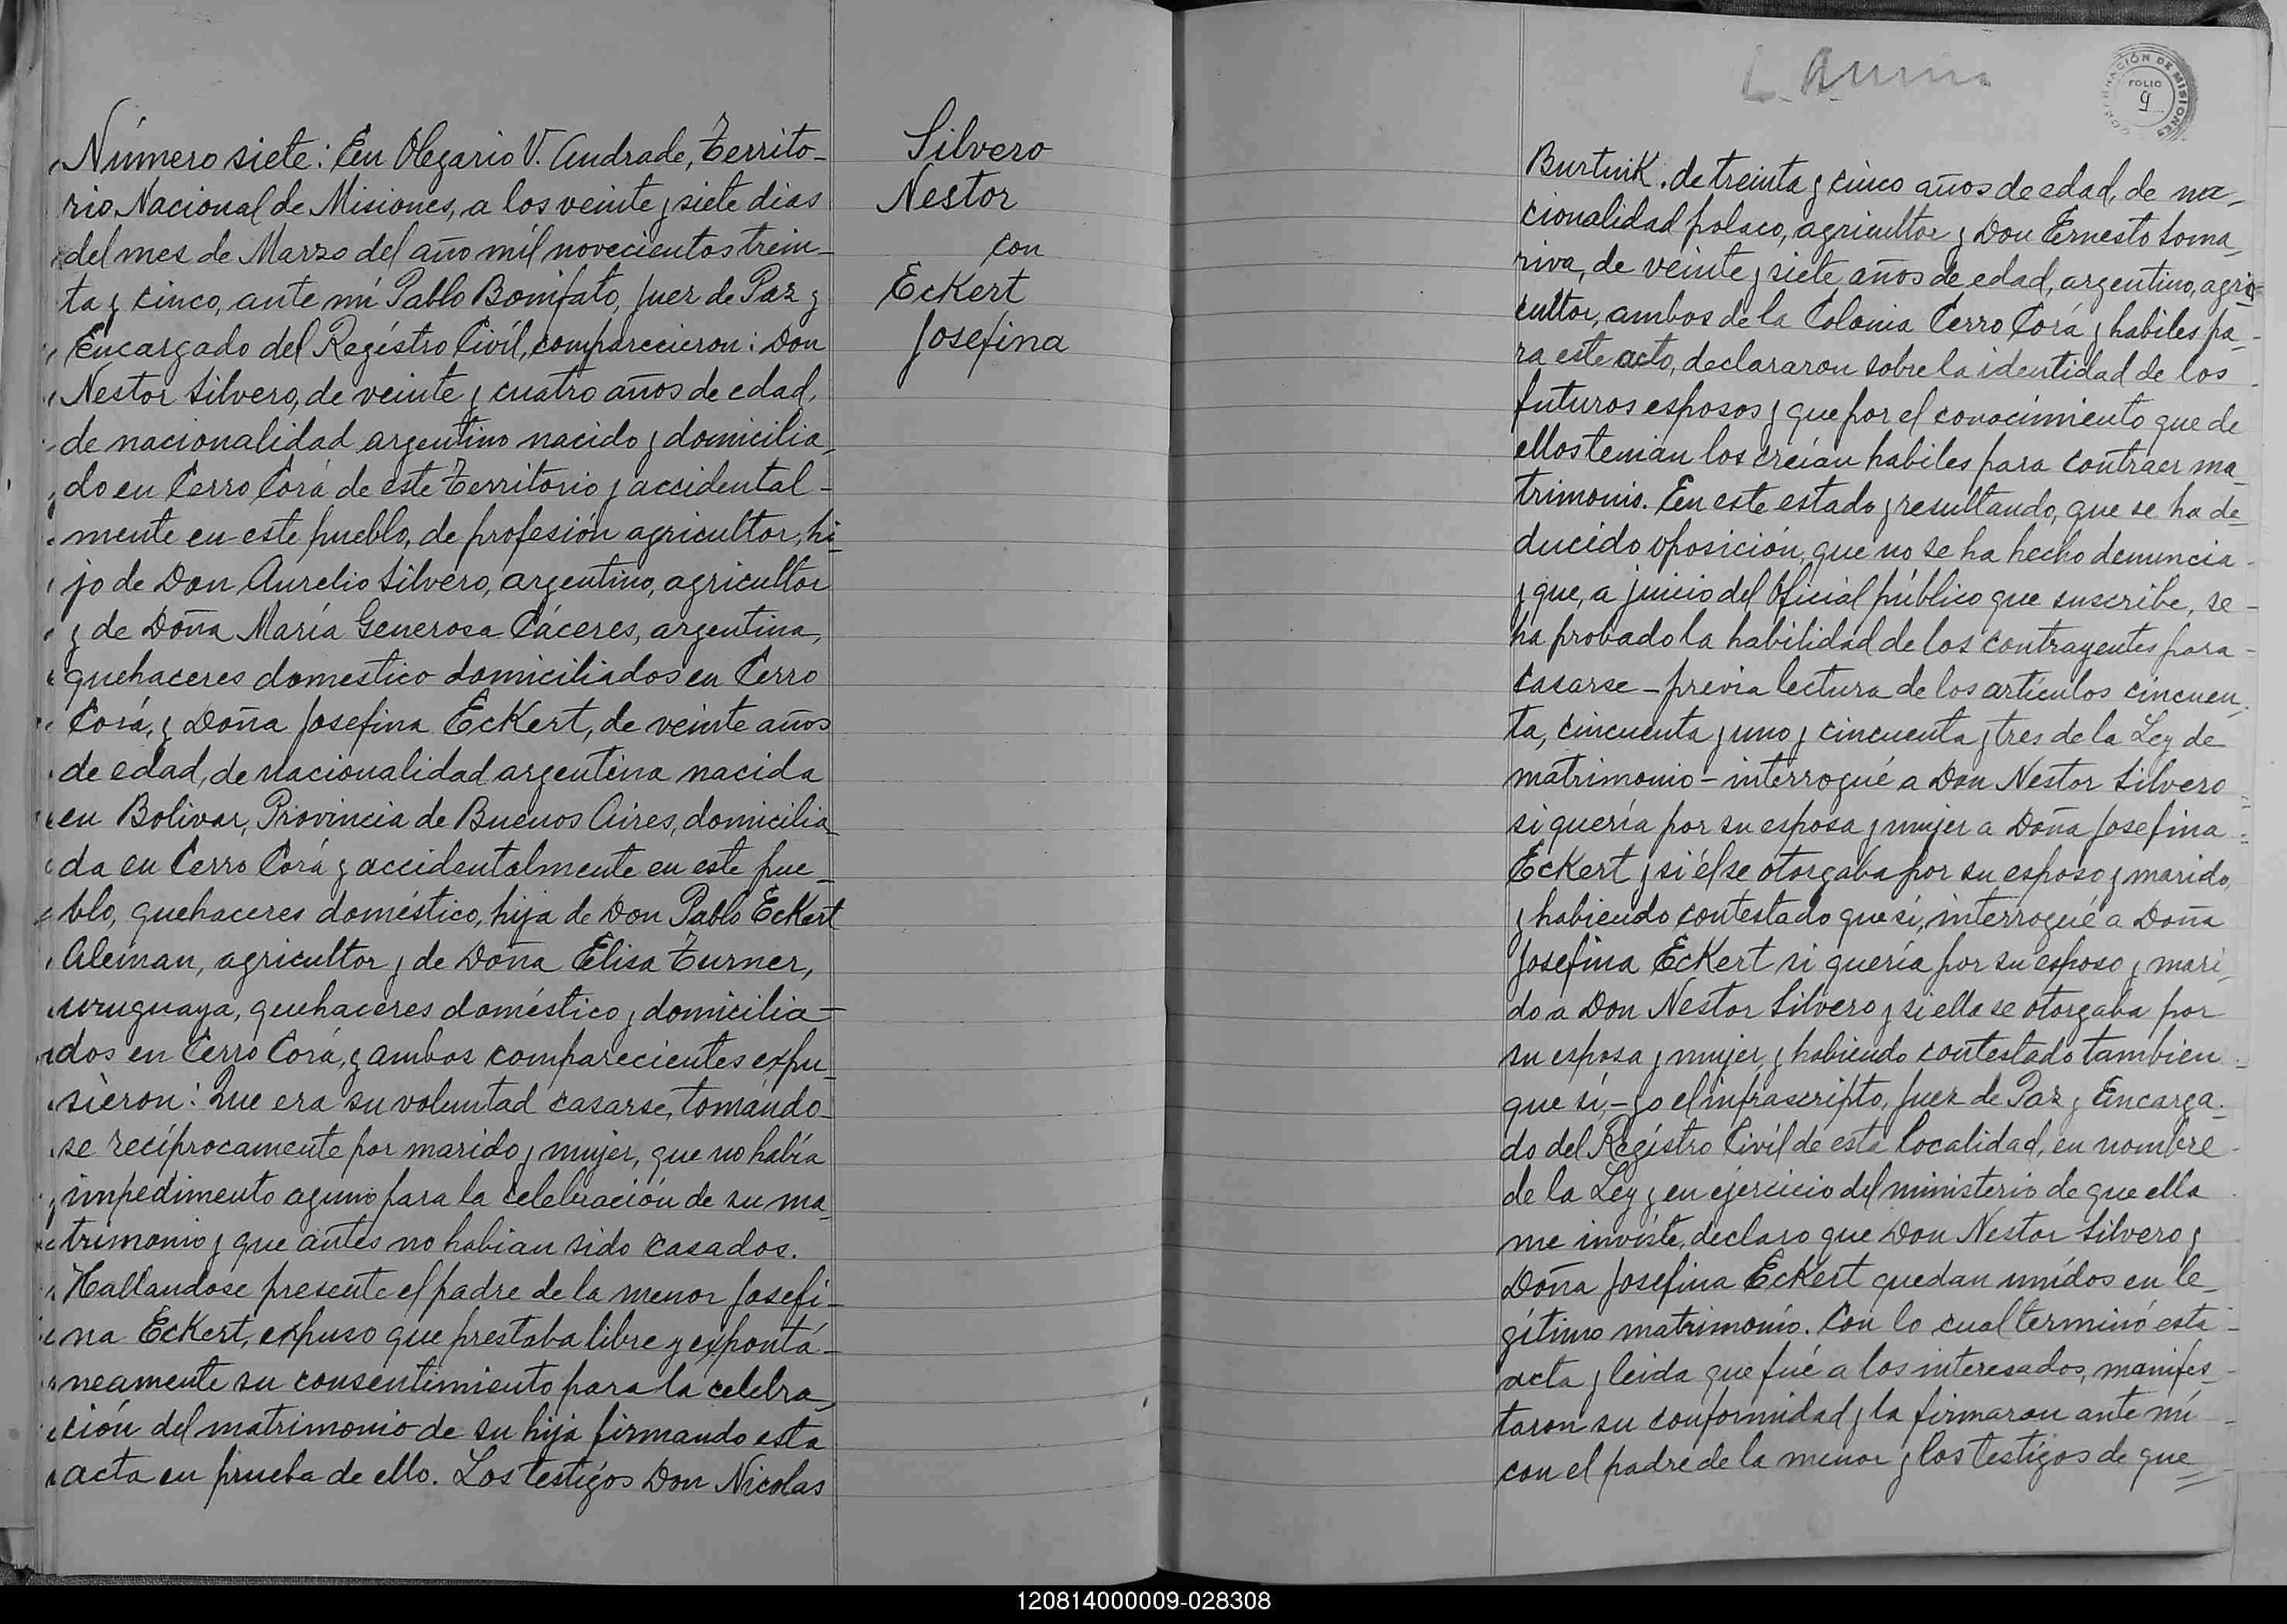 Número siete: En Olegario V. Andrade, Territo-
rio Nacional de Misiones, a los veinte y siete dias
del mes de Marzo del año mil novecientos trein-
ta y cinco, ante mí Pablo Bonifato, Juez de Paz y
Encargado del Regístro Civíl, comparecieron: Don
Nestor Silvero, de veinte y cuatro años de edad,
de nacionalidad argentino nacido y domicilia-
do en Cerro Corá de este Territorio y accidental-
mente en este pueblo, de profesión agricultor, hi-
jo de Don Aurelio Silvero, argentino, agricultor
y de Doña María Generosa Cáceres, argentina,
quehaceres domestico domiciliados en Cerro
Corá, y Doña Josefina Eckert, de veinte años
de edad, de nacionalidad argentina nacida
en Bolivar, Provincia de Buenos Aires, domicilia-
da en Cerro Corá y accidentalmente en este pue-
blo, quehaceres doméstico, hija de Don Pablo Eckert
Aleman, agricultor y de Doña Elisa Turner,
uruguaya, quehaceres doméstico y domicilia-
dos en Cerro Corá, y ambos comparecientes expu-
sieron: Que era su voluntad casarse, tomándo-
se recíprocamente por marido y mujer, que no había
impedimento aguno para la celebración de su ma-
trimonio y que antes no habian sido casados.
Hallandose presente el padre de la menor Josefi-
na Eckert, expuso que prestaba libre y expontá-
neamente su consentimiento para la celebra-
ción del matrimonio de su hija firmando esta
acta en prueba de ello. Los testígos Don Nicolas
Silvero
Nestor
con
Eckert
Josefina
GOBERNACIÓN DE MISIONES
FOLIO
9
Burtnik, de treinta y cinco años de edad, de na-
cionalidad polaco, agricultor y Don Ernesto Soma-
riva, de veinte y siete años de edad, argentino, agri-
cultor, ambos de la Colonia Cerro Corá y habiles pa-
ra este acto, declararon sobre la identidad de los
futuros esposos y que por el conocimiento que de
ellos tenian los creían habiles para contraer ma-
trimonio. En este estado y resultando, que se ha de-
ducido oposición, que no se ha hecho denuncia
y que, a juicio del Oficial público que suscribe, se
ha probado la habilidad de los contrayentes para
casarse - previa lectura de los artículos cincuen-
ta, cincuenta y uno y cincuenta y tres de la Ley de
matrimonio - interrogué a Don Nestor Silvero
si quería por su esposa y mujer a Doña Josefina
Eckert y si él se otorgaba por su esposo y marido,
y habiendo contestado que sí, interrogué a Doña
Josefina Eckert si quería por su esposo y mari-
do a Don Nestor Silvero y si ella se otorgaba por
su esposa y mujer, y habiendo contestado tambien
que sí, - yo el infrascripto, Juez de Paz y Encarga-
do del Regístro Civíl de esta localidad, en nombre
de la Ley y en ejercicio del ministerio de que ella
me inviste, declaro que Don Nestor Silvero y
Doña Josefina Eckert quedan unídos en le-
gítimo matrimonio. Con lo cual terminó esta
acta y leida que fué a los interesados, manifes-
taron su conformidad y la firmaron ante mí
con el padre de la menor y los testígos de que
120814000009-028308